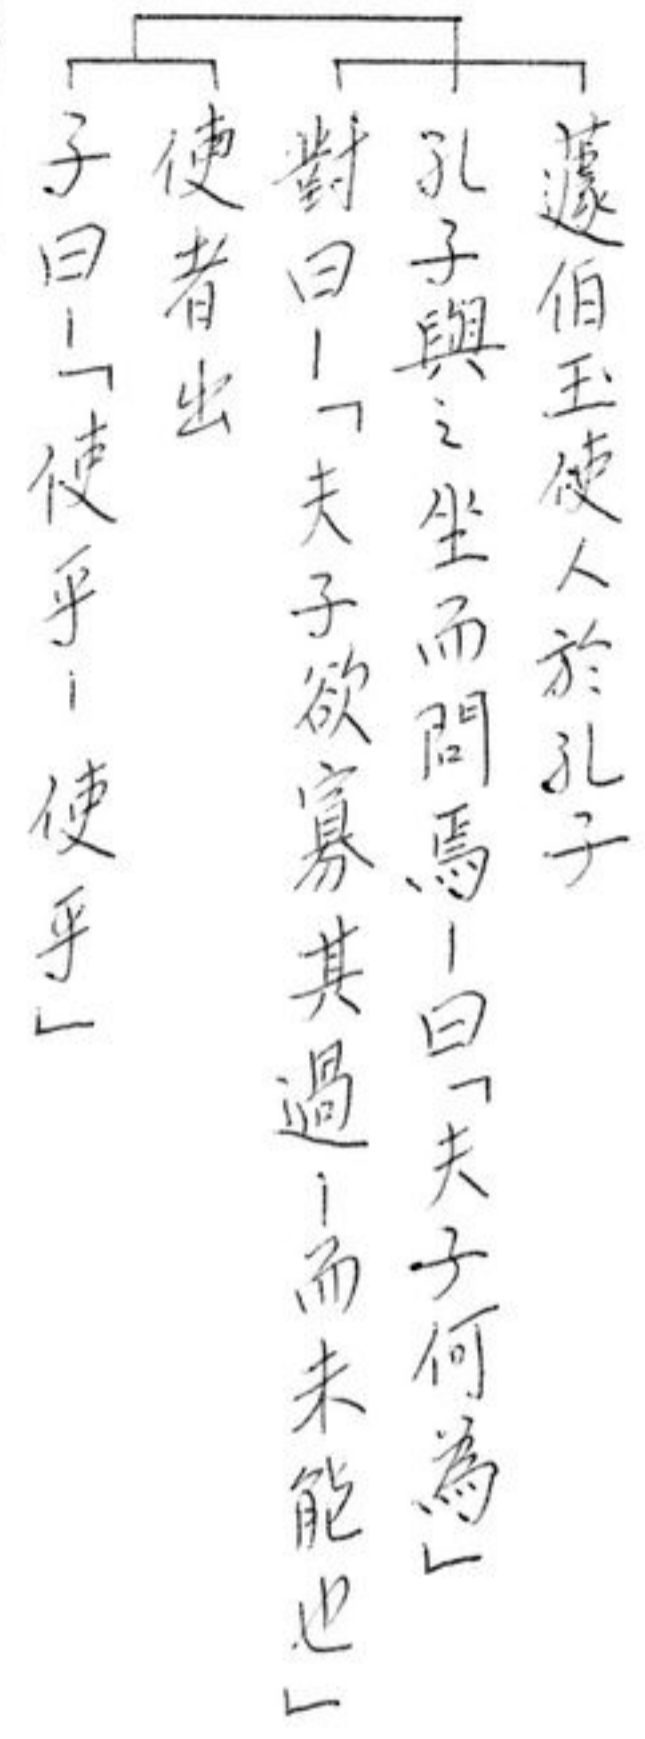 蘧伯玉使人於孔子
孔子與之坐而問焉－曰「夫子何為」
對曰－「夫子欲寡其過－而未能也」
使者出
子曰－「使乎－使乎」